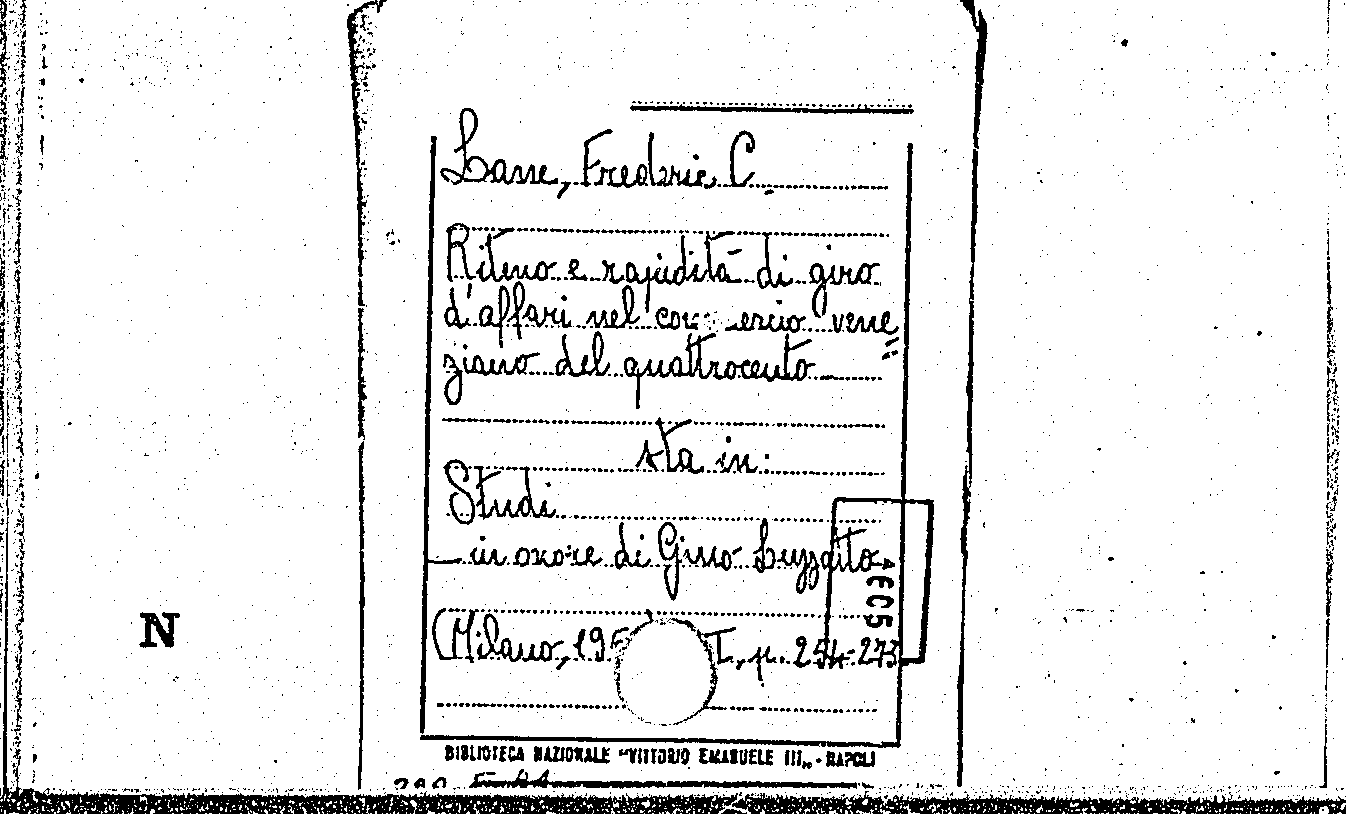 Lane, Frederic C.
Ritmo e rapidità di giro
d'affari nel commercio vene
ziano del quattrocento
sta in:
Studi
in onore di Gino Luzzatto
(Milano, 195 I, p. 254-273
N
BIBLIOTECA NAZIONALE "VITTORIO EMANUELE III„ - NAPOLI